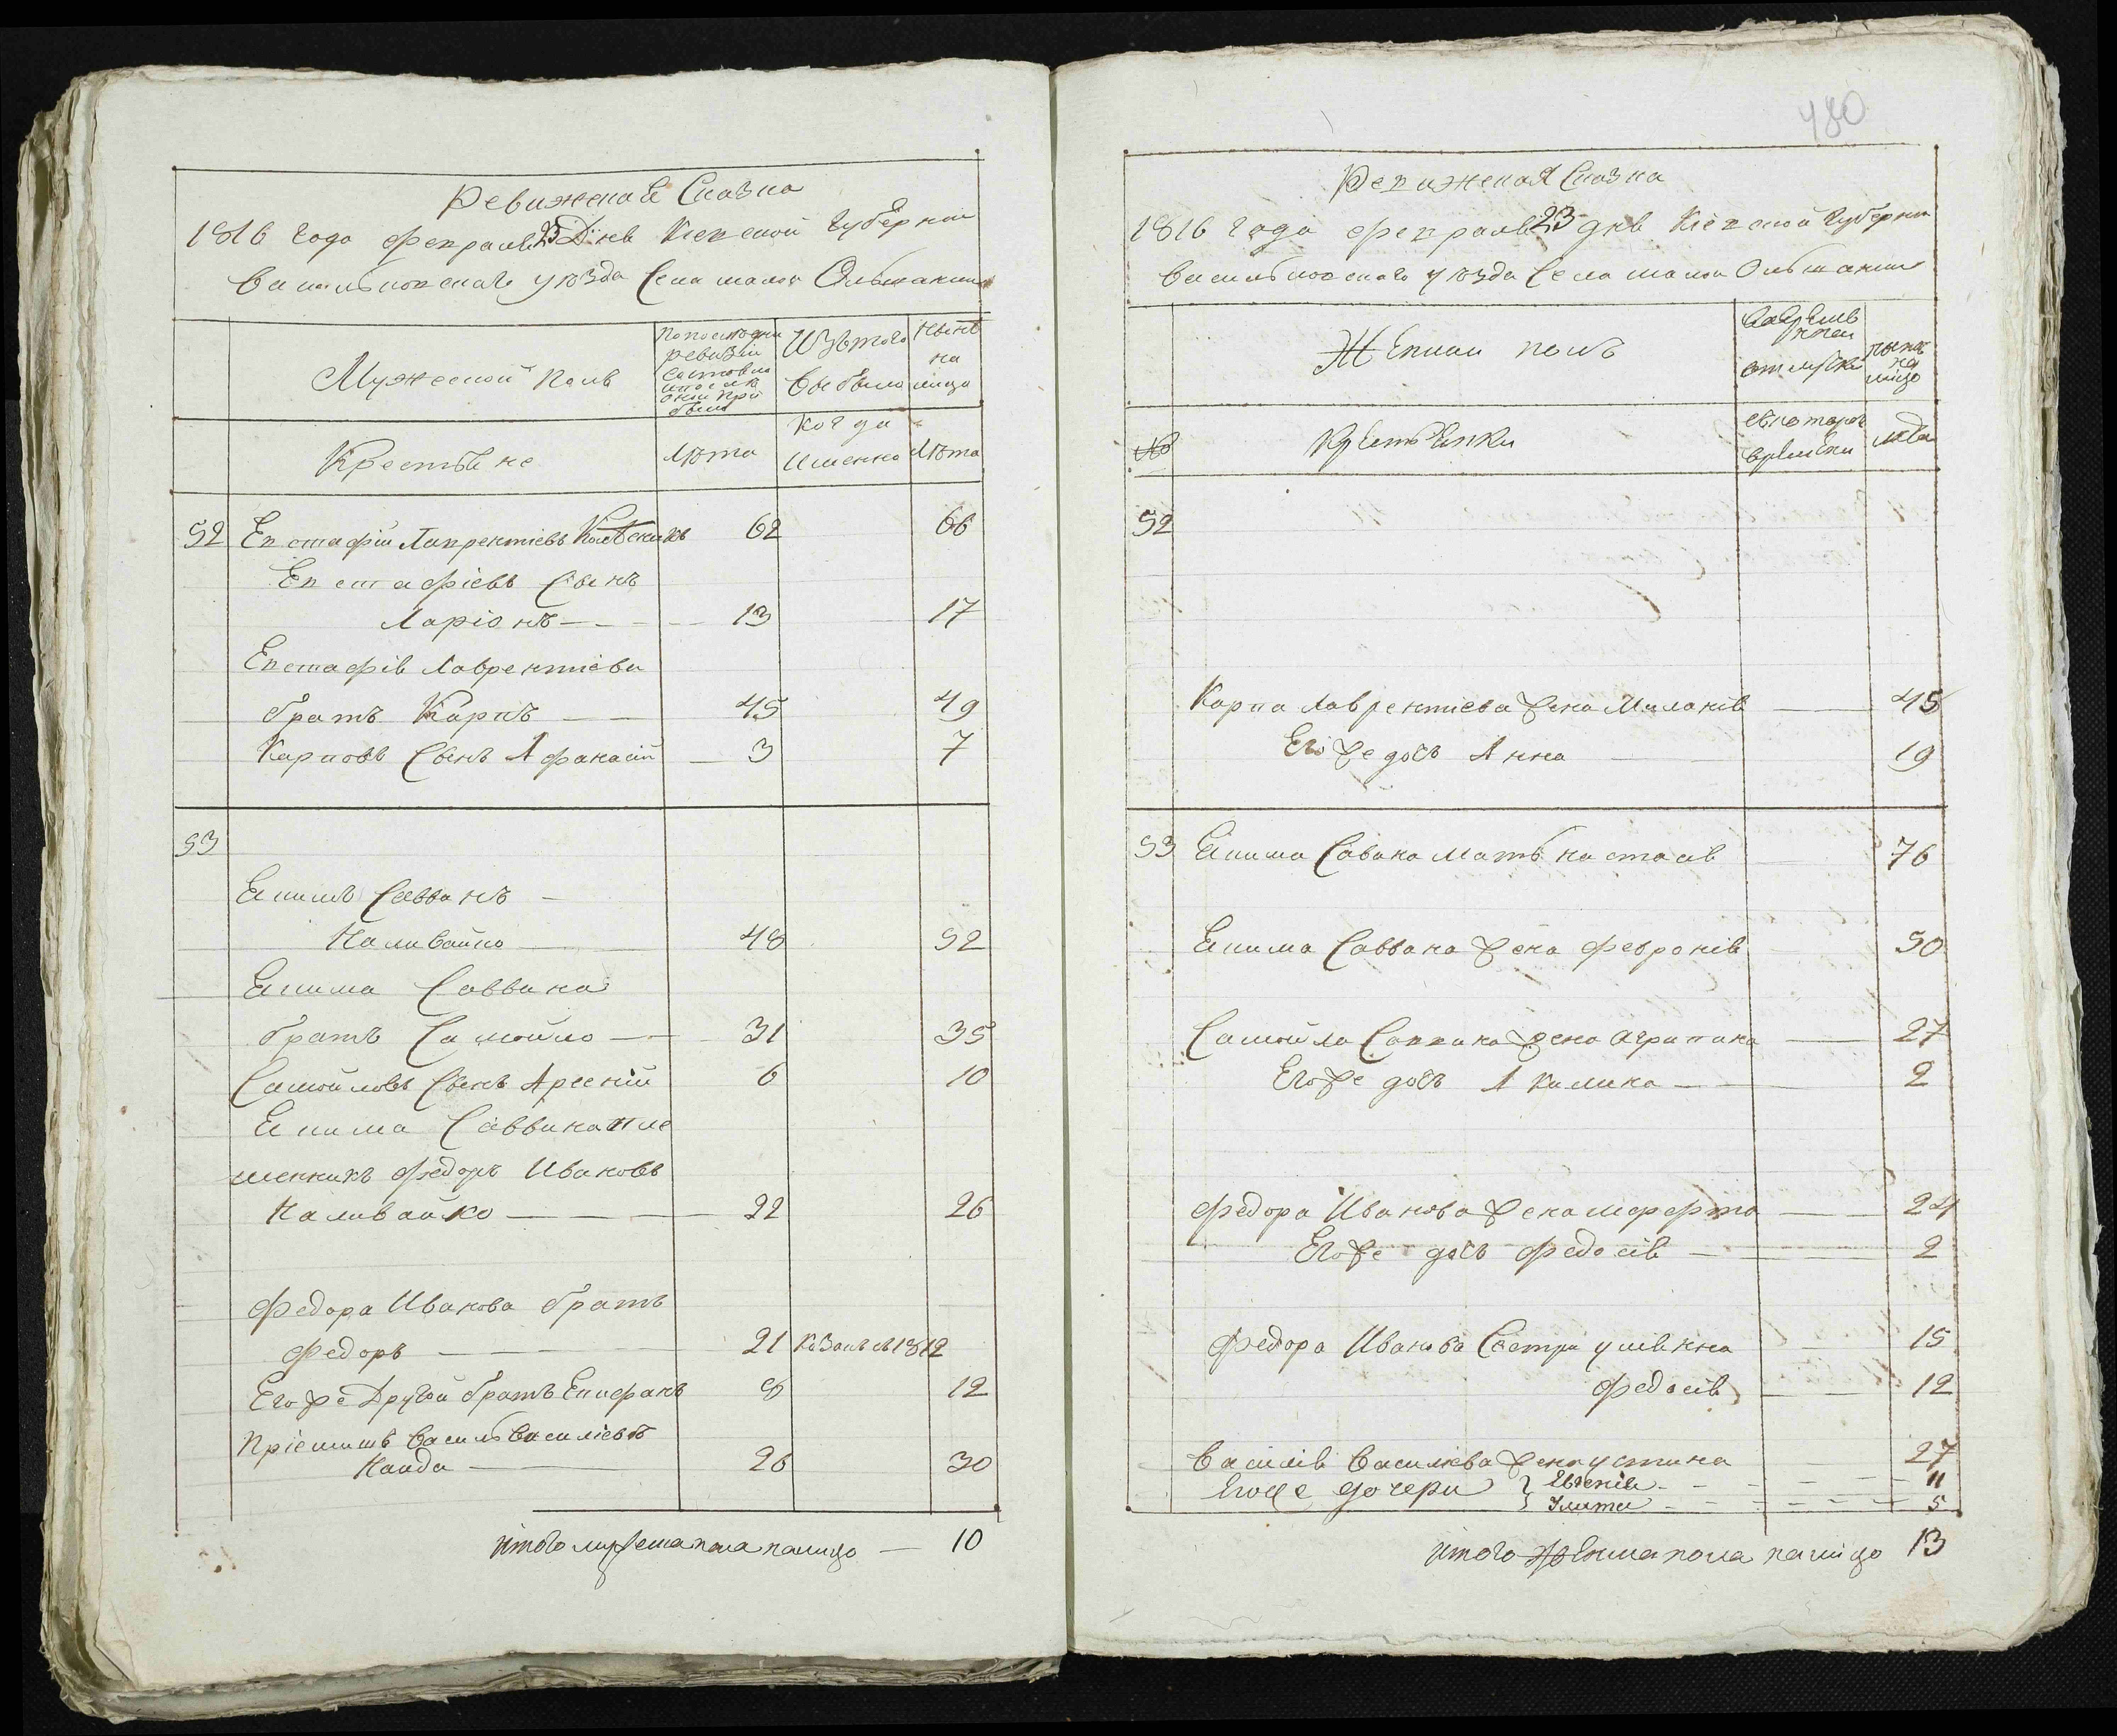 Ревижская Сказка
1816 года февраля 23 Дня Киевской Губернии
Васильковского уезда Села малой Ольшанки
Мужеской Полъ
По последней ревизии состояло и после оной прибыло
Изъ того Выбыло
ныне на лицо
Крестьяне
Лѣта
Когда Именно
Лѣта
52 Евстафій Лаврентіевъ 62 66
Евстафіевъ Сынъ
Ларіонъ 13 17
Евстафія Лаврентіева
братъ Карпъ 45 49
Карповъ Сынъ Афанасій 3 7
53
Екимъ Саввинъ
Наливайко 48 52
Екима Саввина
братъ Самойло 31 35
Самойловъ Сынъ Арсеній 6 10
Екима Саввина пле
менникъ Федоръ Ивановъ
Наливайко 22 26
Федора Иванова братъ
Федоръ 21 1812
Его же Другой братъ Епифанъ 8 12
Пріемышъ Василь Василіевъ
Канда 26 30
итого мужеска пола налицо — 10
480
Ревижская Сказка
1816 года февраля 23 дня Кіевской Губерніи
Васильковского уезда Села малой Ольшанки
Женской полъ
во временной отлучке
ныне на лицо
№
Крестьянки
съ котораго времени
лета
52
Карпа Лаврентіева жена Маланія 45
Его же дочь Анна 19
53 Екима Савина Мать настасія 76
Екима Саввина жена Февронія 50
Самойла Саввина жена Агрипина 27
Его же дочь Акилина 2
Федора Иванова жена Марфа 24
Его же дочь Федосія 2
Федора Иванова Сестри уліянна 15
Федосія 12
Василія Василіева жена устина 27
Его же дочери Евгенія 11
Улита 5
итого Женска пола налицо 13